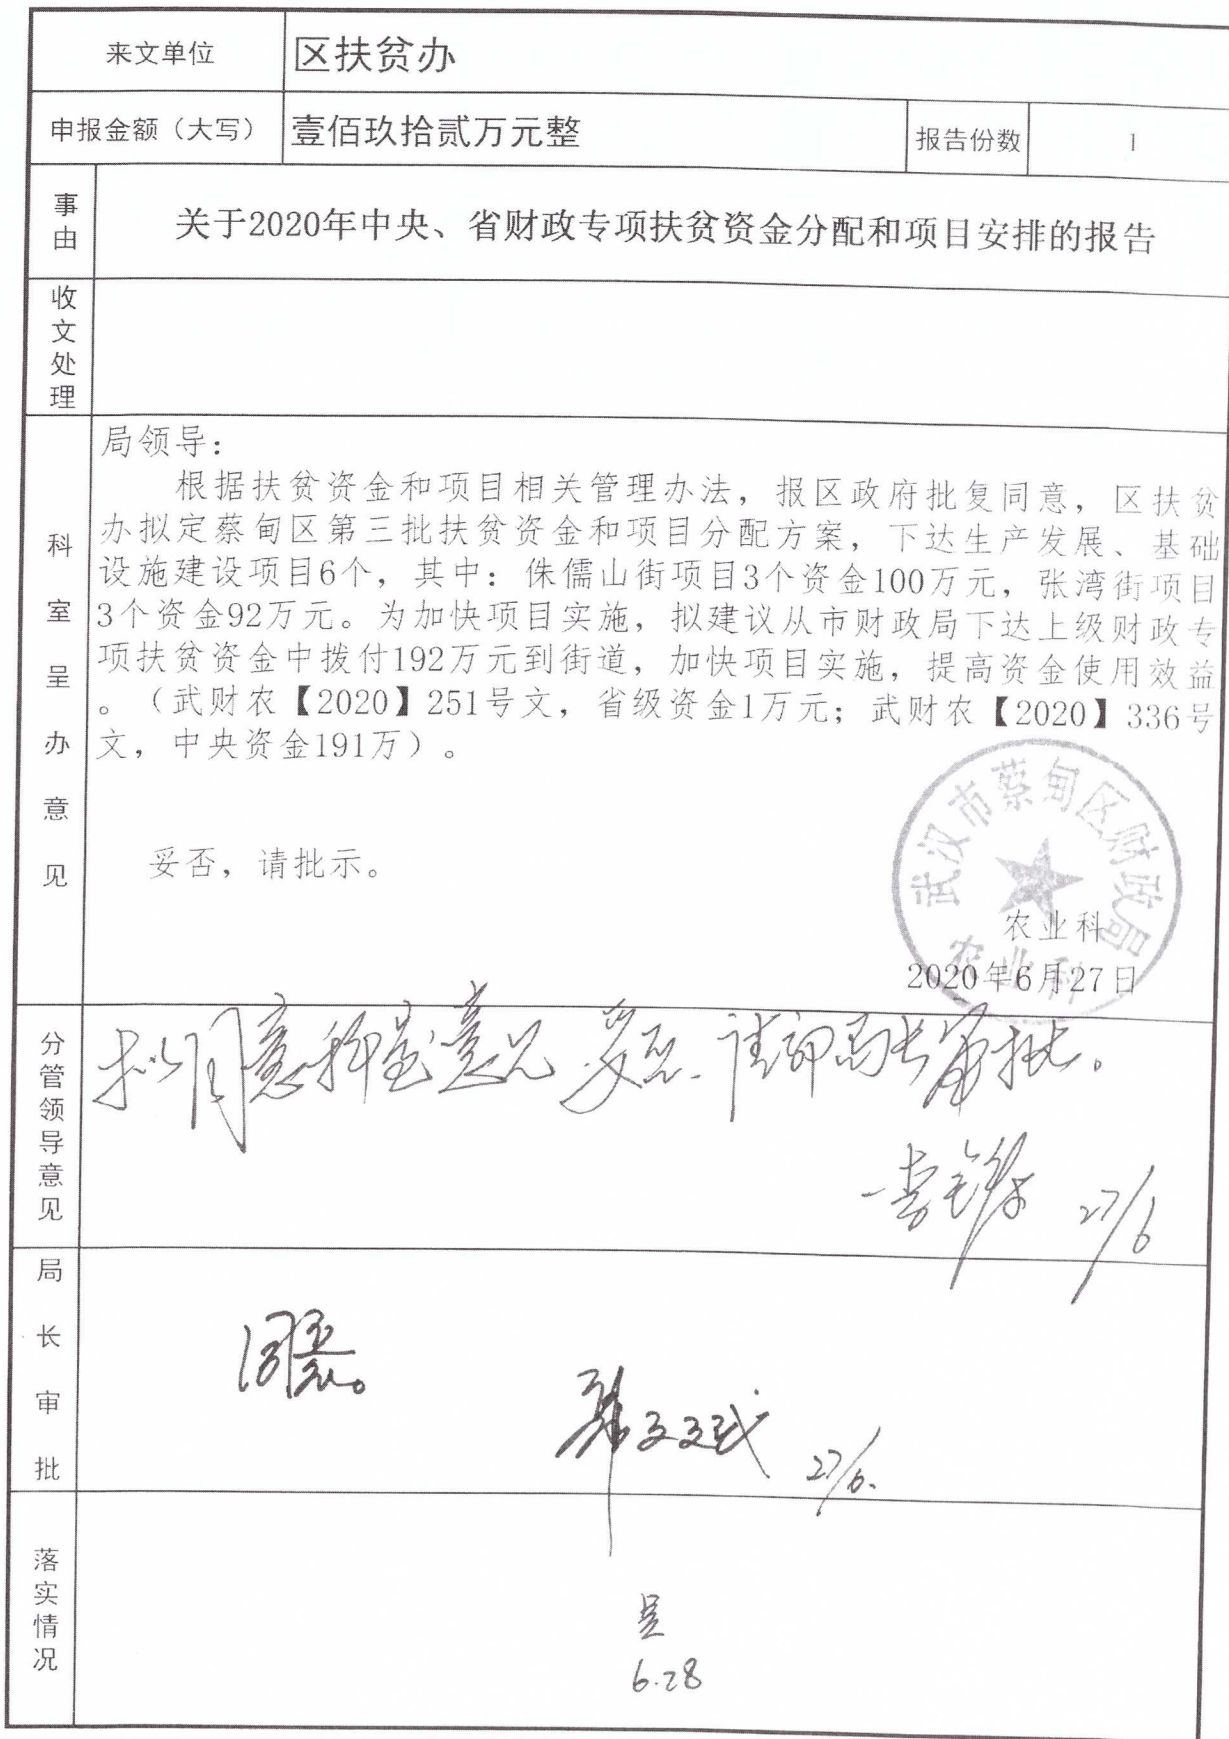 来文单位 区扶贫办
申报金额（大写） 壹佰玖拾贰万元整 报告份数 1
事由 关于2020年中央、省财政专项扶贫资金分配和项目安排的报告
收文处理
科室呈办意见
局领导：
根据扶贫资金和项目相关管理办法，报区政府批复同意，区扶贫
办拟定蔡甸区第三批扶贫资金和项目分配方案，下达生产发展、基础
设施建设项目6个，其中：侏儒山街项目3个资金100万元，张湾街项目
3个资金92万元。为加快项目实施，拟建议从市财政局下达上级财政专
项扶贫资金中拨付192万元到街道，加快项目实施，提高资金使用效益
。（武财农【2020】251号文，省级资金1万元；武财农【2020】336号
文，中央资金191万）。
妥否，请批示。
武汉市蔡甸区财政局
农业科
农业科
2020年6月27日
分管领导意见
拟同意科室意见 妥否、请 局长审批。
27/6
局长审批
同意。
27/6.
落实情况
6.28